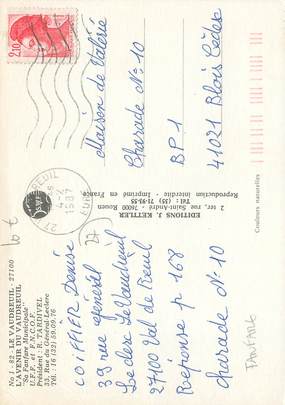 No 1 - 82 - LE VAUDREUIL - 27100
L'AVENIR DU VAUDREUIL
"Sa Fanfare Municipale"
U.F.F. et F.N.C.O.F.
Président : R. TARDIVEL
33, Rue du Général-Leclerc
Tél. : 16 (32) 59.09.76
COIFFIER Denise
39 rue général
Leclerc Le Vaudreuil
27100 Val de Reuil
Réponse p 168
Charade N° 10
EDITIONS J. KETTLER
2 ter, rue Saint-André - 76000 Rouen
Tél : (35) 71-93-55
Reproduction interdite - Imprimé en France
Couleurs naturelles
2,10
1987
EURE
Maison de Valérie
Charade N° 10
BP 1
41021 Blois Cédex
FANFARE
27